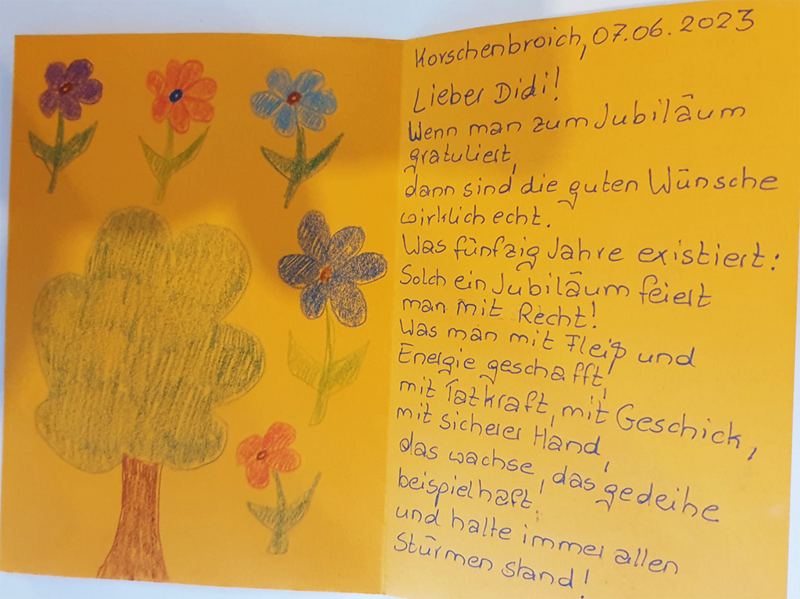 Korschenbroich, 07.06.2023
Lieber Didi!
Wenn man zum Jubiläum
gratuliert,
dann sind die guten Wünsche
wirklich echt.
Was fünfzig Jahre existiert:
Solch ein Jubiläum feiert
man mit Recht!
Was man mit Fleiß und
Energie geschafft,
mit Tatkraft, mit Geschick,
mit sicherer Hand,
das wachse, das gedeihe
beispielhaft.
und halte immer allen
Stürmen stand!